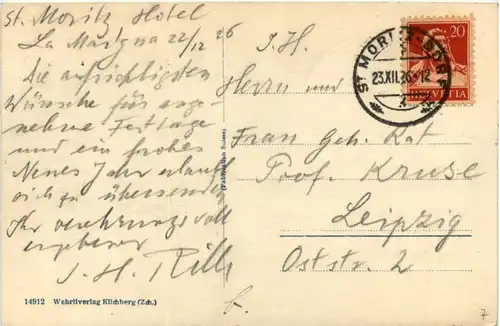 St. Moritz Hotel
La Margna 22/12 26
Die aufrichtigsten
Wünsche für ange-
nehme Festtage
und ein frohes
Neues Jahr erlaubt
sich zu übersenden
Ihr verehrungsvoll
ergebener
J. H.
S. H.
Herrn und
Frau Geh. Rat
Prof. Kruse
Leipzig
Oststr. 2
f.
20
HELVETIA
ST. MORITZ-DORF
23.XII.26-12
14912 Wehrliverlag Kilchberg (Zch.)
7